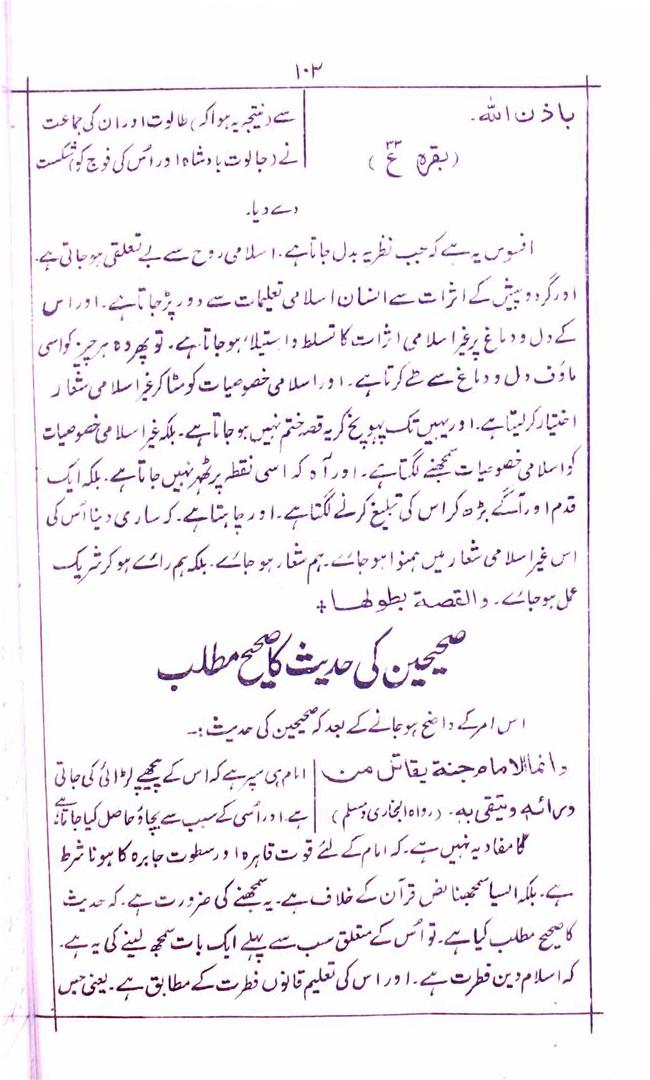 ۱۰۳
باذن اللہ۔
(بقرہ ع ۳۳)
سے (نتیجہ یہ ہوا کہ) طالوت اور ان کی جماعت
نے (جالوت بادشاہ اور اُس کی فوج کو) شکست
دے دیا۔
افسوس یہ ہے کہ جب نظریہ بدل جاتا ہے۔ اسلامی روح سے بے تعلقی ہو جاتی ہے۔
اور گرد و پیش کے اثرات سے انسان اسلامی تعلیمات سے دور پڑ جاتا ہے۔ اور اس
کے دل و دماغ پر غیر اسلامی اثرات کا تسلط و استیلاء ہو جاتا ہے۔ تو پھر وہ ہر چیز کو اسی
ماؤف دل و دماغ سے طے کرتا ہے۔ اور اسلامی خصوصیات کو مٹا کر غیر اسلامی شعار
اختیار کر لیتا ہے۔ اور یہیں تک پہونچ کر یہ قصہ ختم نہیں ہو جاتا ہے۔ بلکہ غیر اسلامی خصوصیات
کو اسلامی خصوصیات سمجھنے لگتا ہے۔ اور آہ کہ اسی نقطہ پر ٹھہر نہیں جاتا ہے۔ بلکہ ایک
قدم اور آگے بڑھ کر اس کی تبلیغ کرنے لگتا ہے۔ اور چاہتا ہے۔ کہ ساری دینا اُس کی
اس غیر اسلامی شعار میں ہمنوا ہو جائے۔ ہم شعار ہو جائے۔ بلکہ ہم رائے ہو کر شریک
عمل ہو جائے۔ والقصۃ بطولھا +
صحیحین کی حدیث کا صحیح مطلب
اس امر کے واضح ہو جانے کے بعد کہ صحیحین کی حدیث :۔
وانما الامام جنۃ یقاتل من
ورائہ ویتقی بہ۔ (رواہ البخاری ومسلم)
امام ہی سپر ہے کہ اس کے پیچھے لڑائی کی جاتی
ہے۔ اور اُسی کے سبب سے بچاؤ حاصل کیا جاتا ہے؛
کا مفاد یہ نہیں ہے۔ کہ امام کے لئے قوت قاہرہ اور سطوت جابرہ کا ہونا شرط
ہے۔ بلکہ ایسا سمجھنا نص قرآن کے خلاف ہے۔ یہ سمجھنے کی ضرورت ہے۔ کہ حدیث
کا صحیح مطلب کیا ہے۔ تو اُس کے متعلق سب سے پہلے ایک بات سمجھ لینے کی یہ ہے۔
کہ اسلام دین فطرت ہے۔ اور اس کی تعلیم قانون فطرت کے مطابق ہے۔ یعنی جس